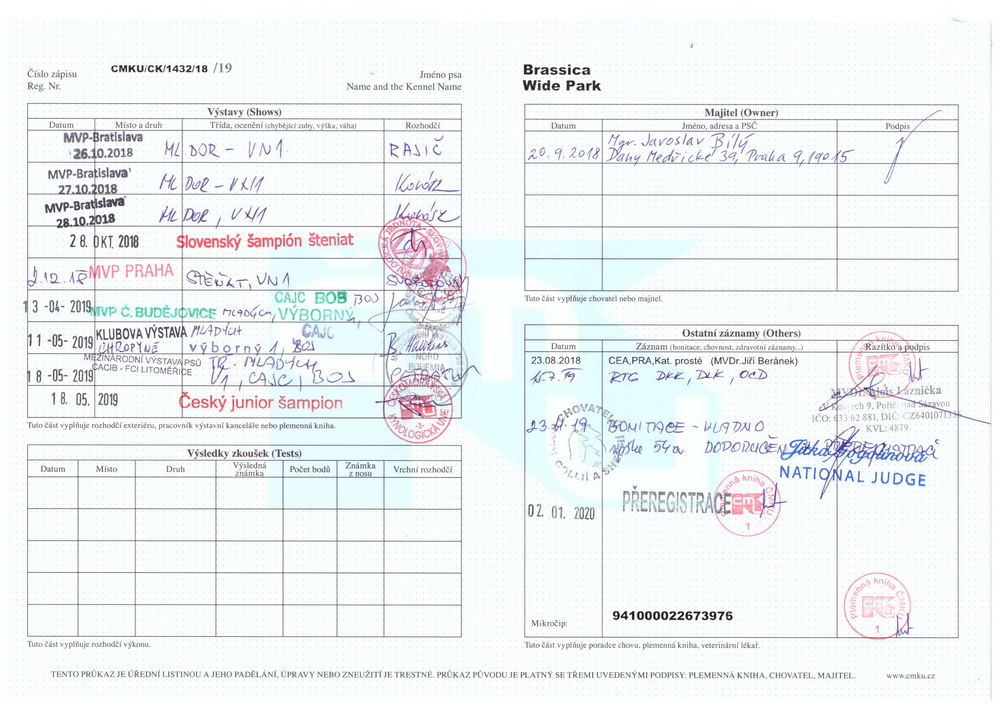 Číslo zápisu
Reg. Nr.
CMKU/CK/1432/18 /19
Jméno psa
Name and the Kennel Name
Výstavy (Shows)
Datum Místo a druh Třída, ocenění (chybějící zuby, výška, váha) Rozhodčí
MVP-Bratislava
26.10.2018 ML DOR - VN1. RAJIČ
MVP-Bratislava
27.10.2018 ML DOR - VN1
MVP-Bratislava
28.10.2018 ML DOR, VN1
28. OKT. 2018 Slovenský šampión šteniat
2.12.18 MVP PRAHA ŠTĚŇAT, VN1
13 -04- 2019 MVP Č. BUDĚJOVICE MLADÝCH, VÝBORNÝ, CAJC BOB BOJ
11 -05- 2019 KLUBOVA VÝSTAVA MLADÝCH CAJC
CHROPYNĚ výborný 1, BOJ
MEZINÁRODNÍ VÝSTAVA PSŮ TŘ. MLADÝCH
18 -05- 2019 CACIB - FCI LITOMĚŘICE V1, CAJC, BOJ
18. 05. 2019 Český junior šampion
Tuto část vyplňuje rozhodčí exteriéru, pracovník výstavní kanceláře nebo plemenná kniha.
Výsledky zkoušek (Tests)
Datum Místo Druh Výsledná známka Počet bodů Známka z nosu Vrchní rozhodčí
Tuto část vyplňuje rozhodčí výkonu.
Brassica
Wide Park
Majitel (Owner)
Datum Jméno, adresa a PSČ Podpis
Mgr. Jaroslav Bílý
20.9.2018 Dany Medřické 39, Praha 9, 19015
Tuto část vyplňuje chovatel nebo majitel.
Ostatní záznamy (Others)
Datum Záznam (bonitace, chovnost, zdravotní záznamy...) Razítko a podpis
23.08.2018 CEA,PRA,Kat. prosté (MVDr.Jiří Beránek)
15.7.19 RTG DKK, DLK, OCD
MVDr. Alois Láznička
9, Poříčí nad Sázavou
IČO: 633 62 881, DIČ: CZ6401071335
KVL: 4879
23.11.19 BONITACE - KLADNO
výška 54cm DOPORUČEN
NATIONAL JUDGE
02. 01. 2020 PŘEREGISTRACE
Plemenná kniha ČMKU
1
Plemenná kniha ČMKU
1
Mikročip: 941000022673976
Tuto část vyplňuje poradce chovu, plemenná kniha, veterinární lékař.
TENTO PRŮKAZ JE ÚŘEDNÍ LISTINOU A JEHO PADĚLÁNÍ, ÚPRAVY NEBO ZNEUŽITÍ JE TRESTNÉ. PRŮKAZ PŮVODU JE PLATNÝ SE TŘEMI UVEDENÝMI PODPISY: PLEMENNÁ KNIHA, CHOVATEL, MAJITEL. www.cmku.cz